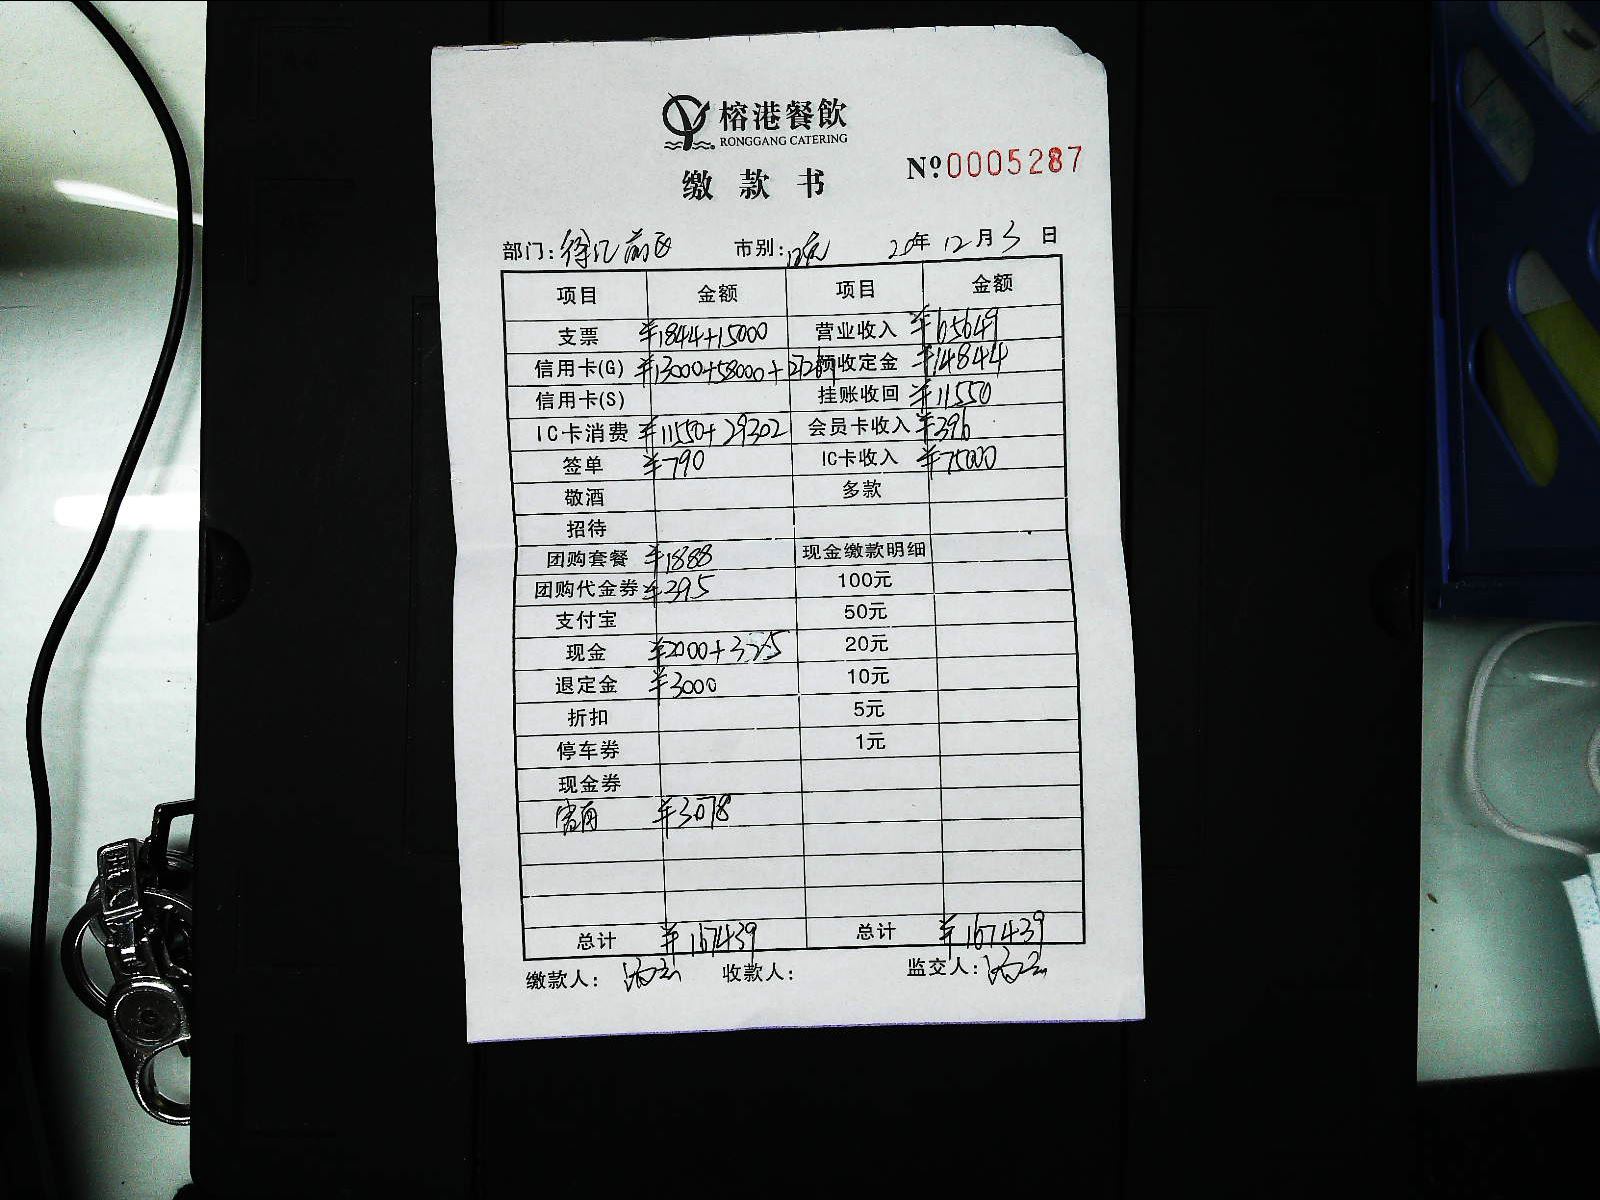 榕港餐飲
RONGGANG CATERING
缴款书
№0005287
部门:徐汇前区 市别:晚 20年 12月 3日
项目 金额 项目 金额
支票 ¥1844+15000 营业收入 ¥65649
信用卡(G) ¥13000+58000+27267 预收定金 ¥14844
信用卡(S) 挂账收回 ¥11550
IC卡消费 ¥11550+29302 会员卡收入 ¥396
签单 ¥790 IC卡收入 ¥75000
敬酒 多款
招待
团购套餐 ¥1888 现金缴款明细
团购代金券 ¥395 100元
支付宝 50元
现金 ¥2000+325 20元
退定金 ¥3000 10元
折扣 5元
停车券 1元
现金券
¥3078
总计 ¥167439 总计 ¥167439
缴款人: 收款人: 监交人: